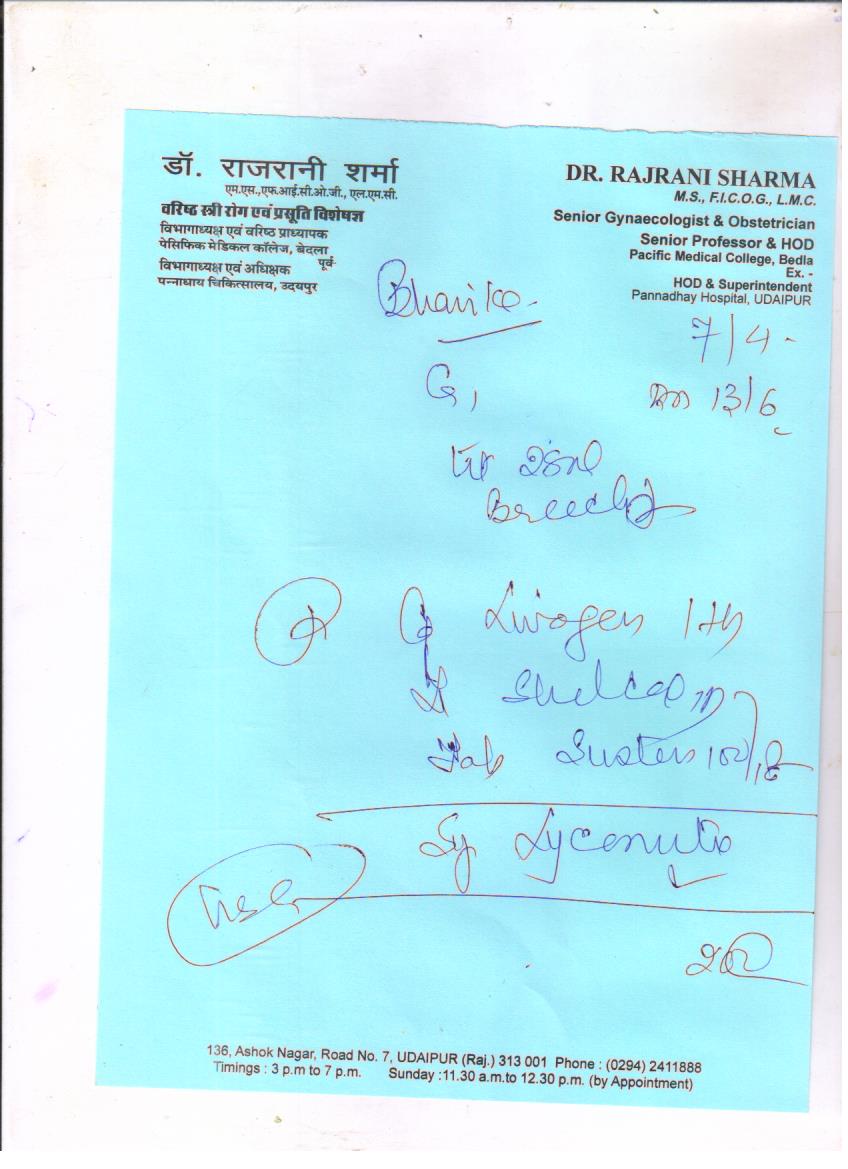 डॉ. राजरानी शर्मा
एम.एस.,एफ.आई.सी.ओ.जी., एल.एम.सी.
वरिष्ठ स्त्री रोग एवं प्रसूति विशेषज्ञ
विभागाध्यक्ष एवं वरिष्ठ प्राध्यापक
पेसिफिक मेडिकल कॉलेज, बेदला
पूर्व-
विभागाध्यक्ष एवं अधिक्षक
पन्नाधाय चिकित्सालय, उदयपुर
DR. RAJRANI SHARMA
M.S., F.I.C.O.G., L.M.C.
Senior Gynaecologist & Obstetrician
Senior Professor & HOD
Pacific Medical College, Bedla
Ex. -
HOD & Superintendent
Pannadhay Hospital, UDAIPUR
7/4-
G1
13/6
Breech
Livogen
Shelcal
Tab Susten
Sy
136, Ashok Nagar, Road No. 7, UDAIPUR (Raj.) 313 001 Phone : (0294) 2411888
Timings : 3 p.m to 7 p.m. Sunday :11.30 a.m.to 12.30 p.m. (by Appointment)